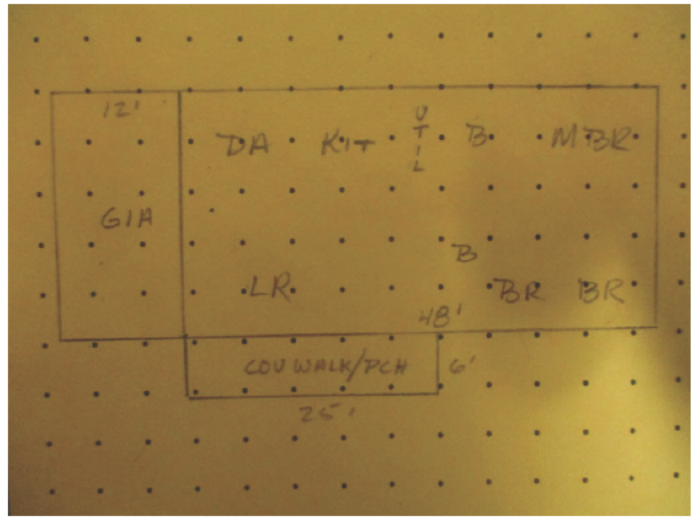 12'
DA KIT UTIL B MBR
G/A
B
LR BR BR
48'
COV WALK/PCH 6'
25'